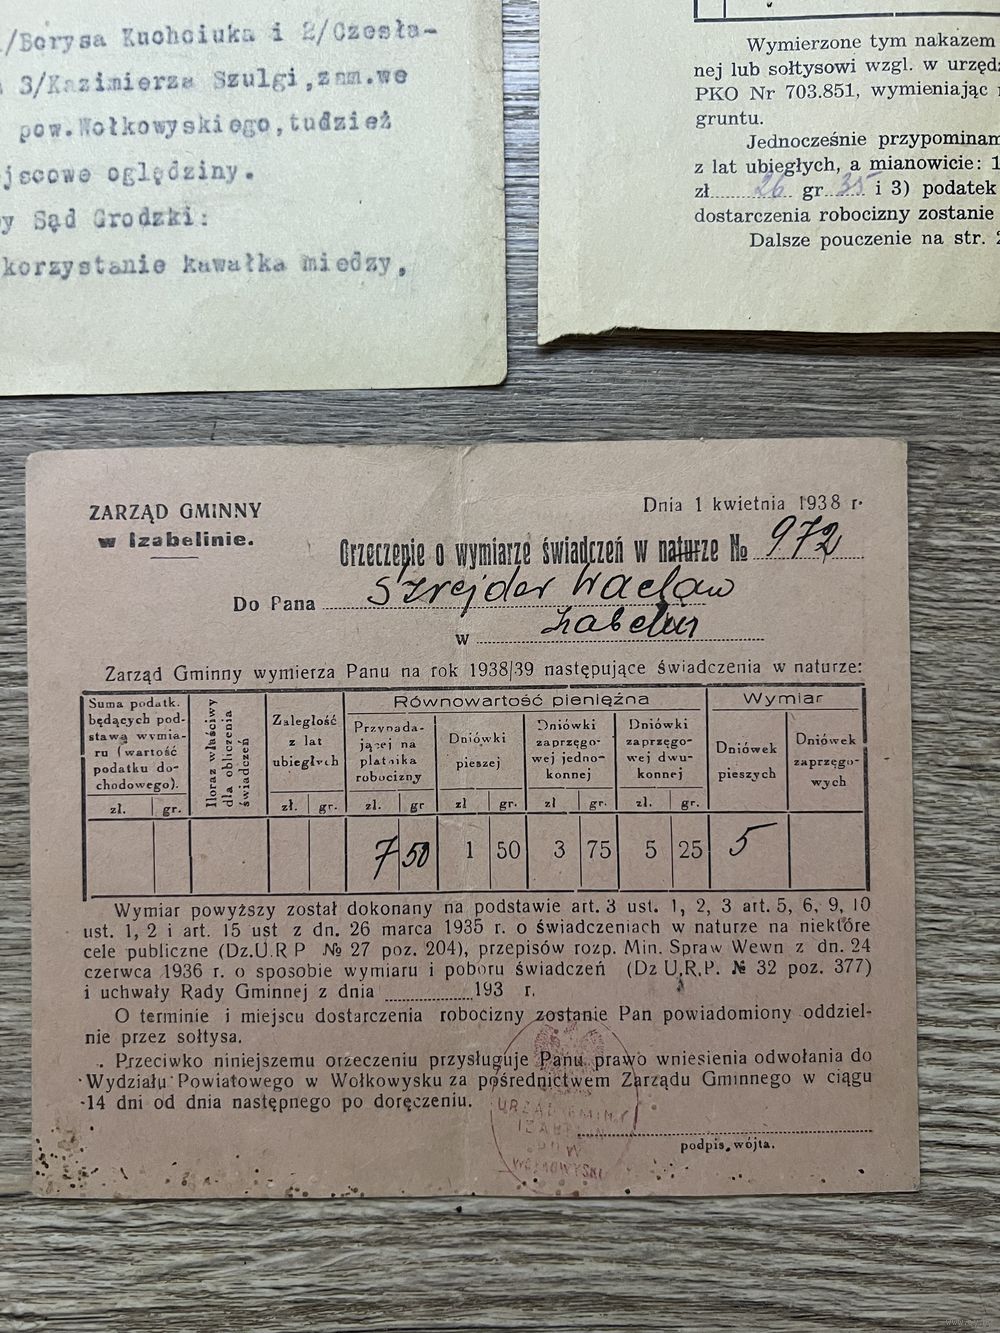 /Borysa Kuchciuka i 2/Czesła-
3/Kazimierza Szulgi,zam.we
pow.Wołkowyskiego,tudzież
jscowe oględziny.
y Sąd Grodzki:
korzystanie kawałka miedzy,
Wymierzone tym nakazem
nej lub sołtysowi wzgl. w urzędz
PKO Nr 703.851, wymieniając
gruntu.
Jednocześnie przypominam
z lat ubiegłych, a mianowicie: 1
zł 26 gr 35 i 3) podatek
dostarczenia robocizny zostanie
Dalsze pouczenie na str. 2
ZARZĄD GMINNY
w Izabelinie.
Dnia 1 kwietnia 1938 r.
Orzeczenie o wymiarze świadczeń w naturze № 972
Do Pana Szrejder Wacław
w Izabelin
Zarząd Gminny wymierza Panu na rok 1938/39 następujące świadczenia w naturze:
Suma podatk. będących podstawą wymiaru (wartość podatku dochodowego).
Iloraz właściwy dla obliczenia świadczeń
Zaległość z lat ubiegłych
Równowartość pieniężna
Przypadającej na płatnika robocizny
Dniówki pieszej
Dniówki zaprzęgowej jednokonnej
Dniówki zaprzęgowej dwukonnej
Wymiar
Dniówek pieszych
Dniówek zaprzęgowych
zł. gr. zł. gr. zł. gr zł gr. zł gr. zł. gr.
7 50 1 50 3 75 5 25 5
Wymiar powyższy został dokonany na podstawie art. 3 ust. 1, 2, 3 art. 5, 6, 9, 10
ust. 1, 2 i art. 15 ust z dn. 26 marca 1935 r. o świadczeniach w naturze na niektóre
cele publiczne (Dz.U.R P № 27 poz. 204), przepisów rozp. Min. Spraw Wewn z dn. 24
czerwca 1936 r. o sposobie wymiaru i poboru świadczeń (Dz U.R.P. № 32 poz. 377)
i uchwały Rady Gminnej z dnia 193 r.
O terminie i miejscu dostarczenia robocizny zostanie Pan powiadomiony oddziel-
nie przez sołtysa.
Przeciwko niniejszemu orzeczeniu przysługuje Panu prawo wniesienia odwołania do
Wydziału Powiatowego w Wołkowysku za pośrednictwem Zarządu Gminnego w ciągu
14 dni od dnia następnego po doręczeniu.
URZĄD GMINY
IZABELIN
POW
WOŁKOWYSKI
podpis wójta.